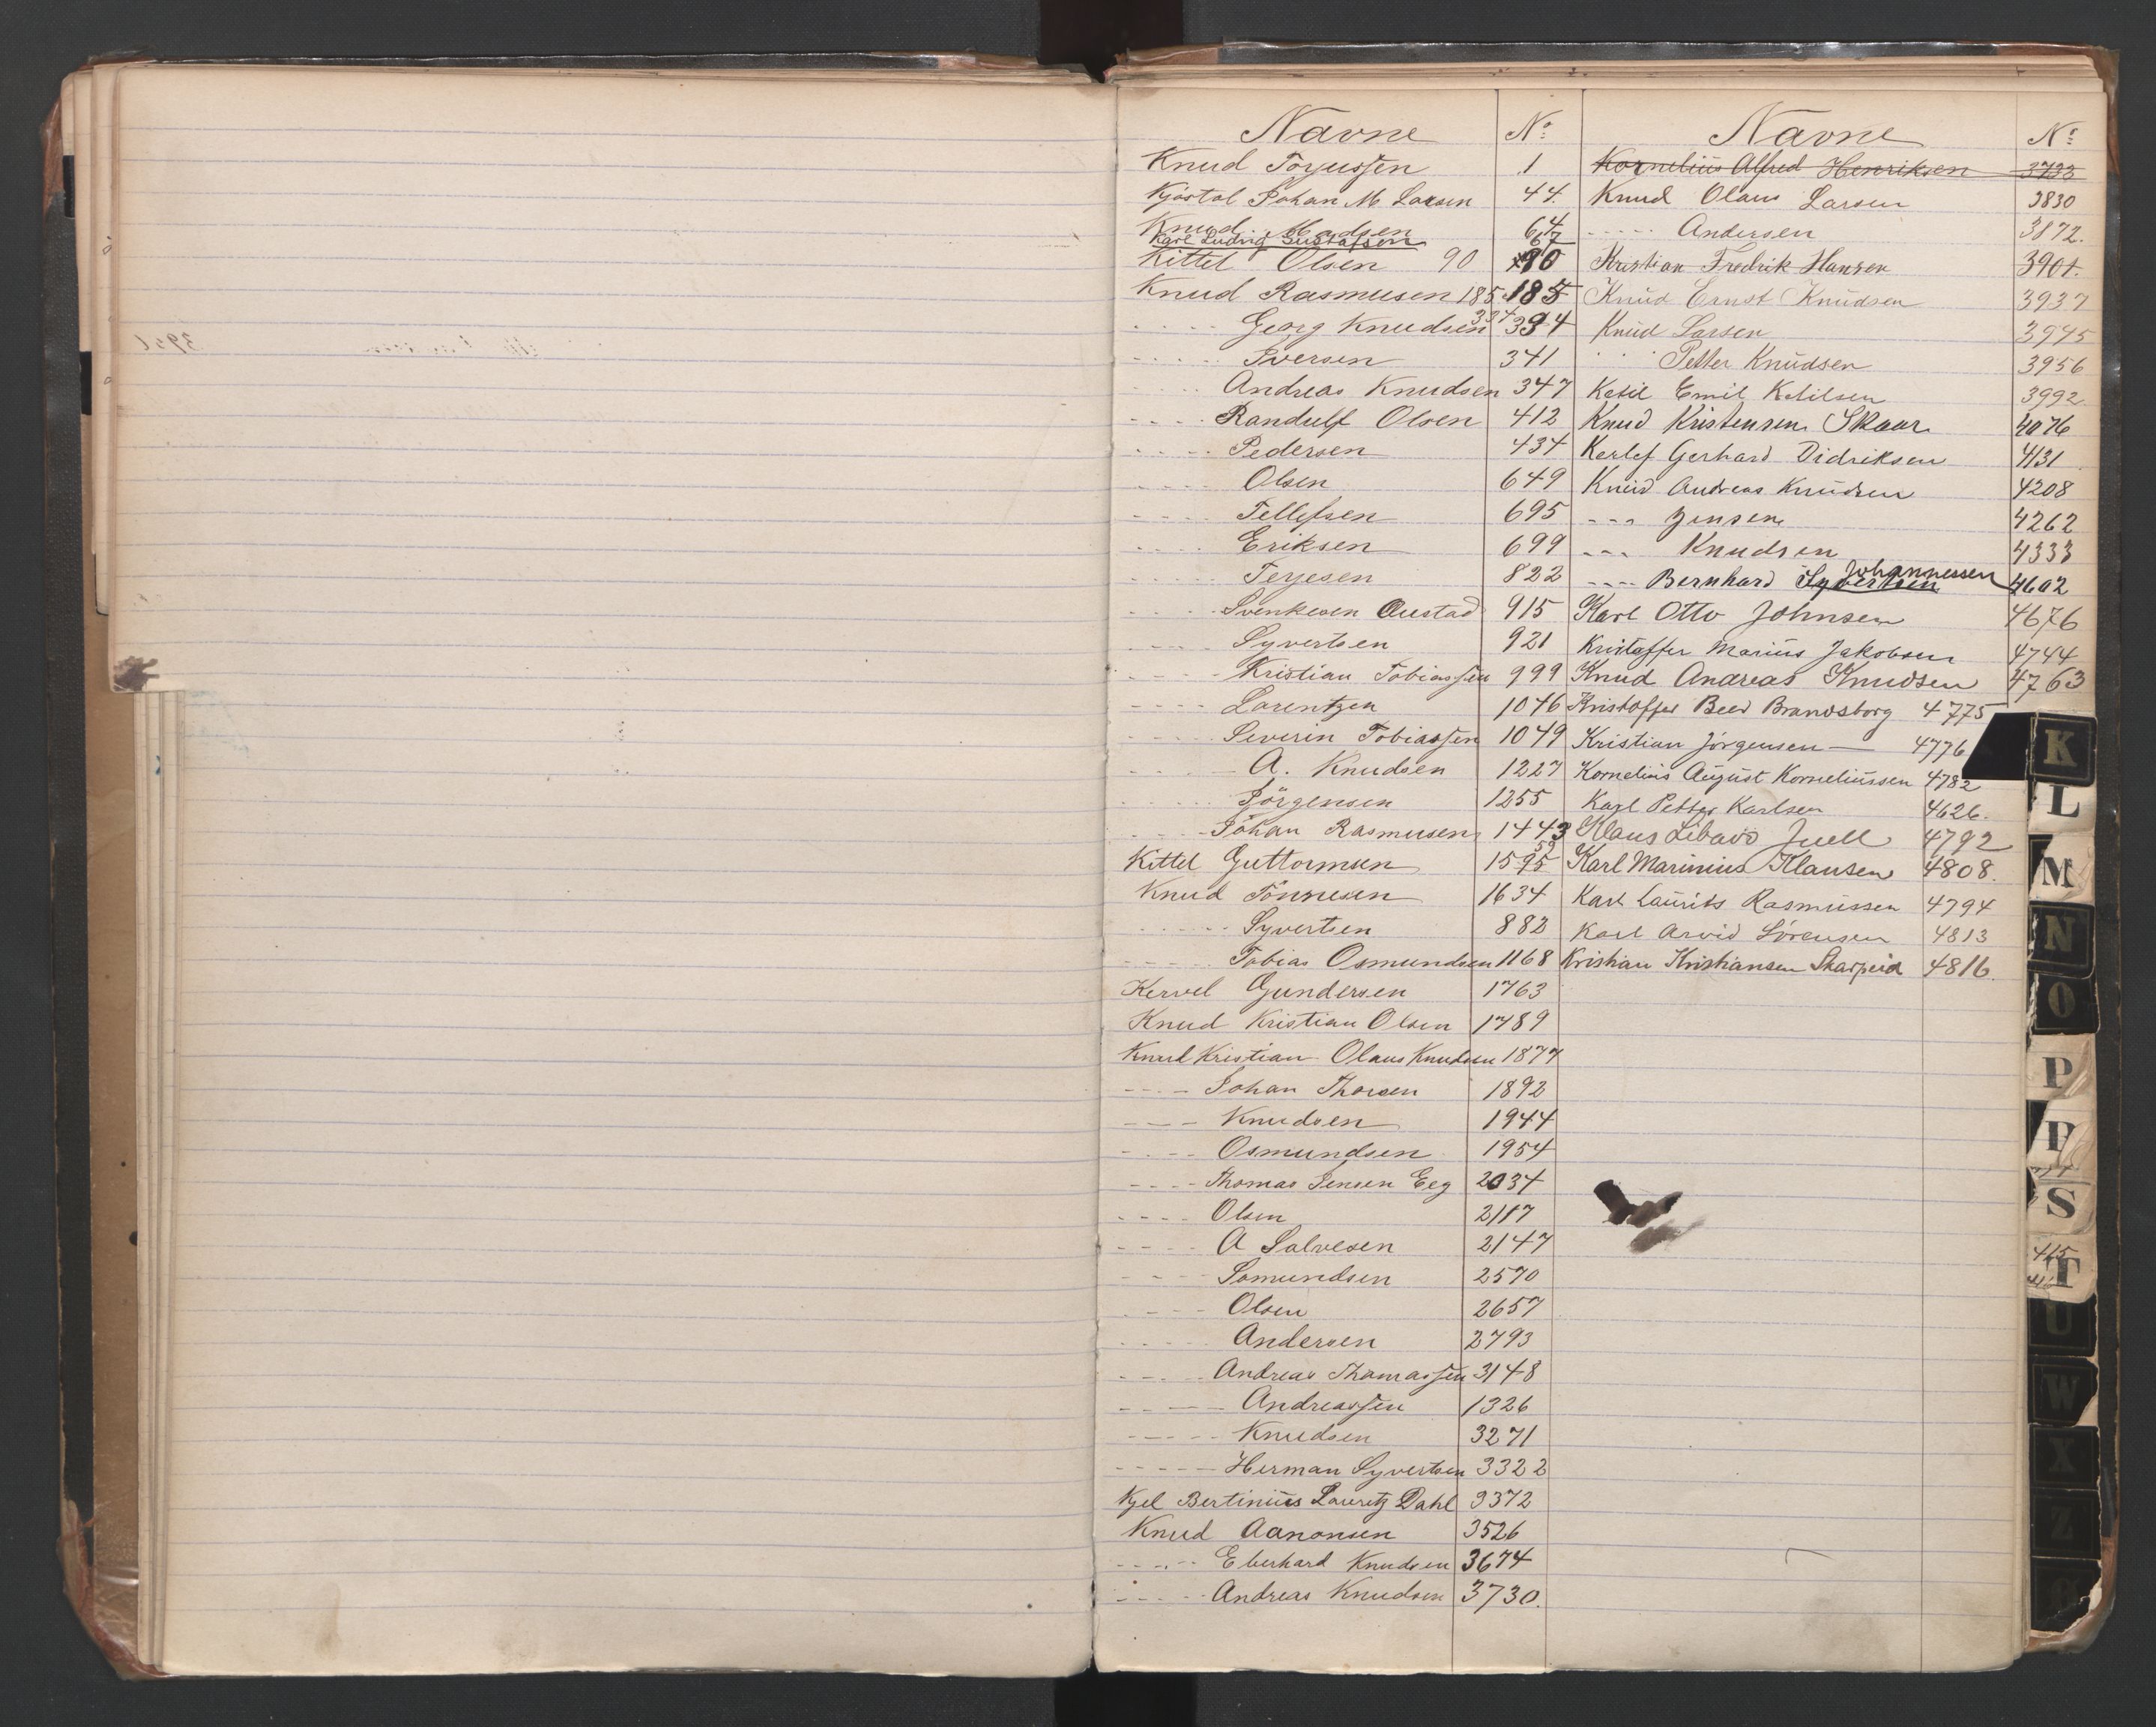 Navne No
Knud Torjussen 1
Kjøstol Johan M Larsen 44.
Knud Madsen 64
Karl Ludvig Gustafson 67
Kittel Olsen 90 90
Knud Rasmusen 185 185
- - - - Georg Knudsen 334 334
- - - - Iversen 341
- - - - Andreas Knudsen 347
- - - - Randulf Olsen 412
- - - - Pedersen 434
- - - - Olsen 649
- - - - Tellefsen 695
- - - - Eriksen 699
- - - - Terjesen 822
- - - - Svenkesen Austad 915
- - - - Syvertsen 921
- - - - Kristian Tobiassen 999
- - - - Lorentzen 1046
- - - - Severin Tobiassen 1049
- - - - A. Knudsen 1227
- - - - Jörgensen 1255
- - - - Johan Rasmusen 1443
Kittel Guttormsen 1595 59
Knud Tönnesen 1634
- - - - Syvertsen 882
- - - - Tobias Osmundsen 1168
Kervel Gundersen 1763
Knud Kristian Olsen 1789
Knud Kristian Olaus Knudsen 1877
- - - - Johan Thorsen 1892
- - - - Knudsen 1944
- - - - Osmundsen 1954
- - - - Thomas Jensen Eeg 2034
- - - - Olsen 2117
- - - - A Salvesen 2147
- - - - Somundsen 2570
- - - - Olsen 2657
- - - - Andersen 2793
- - - - Andreas Thomassen 3148
- - - - Andreassen 1326
- - - - Knudsen 3271
- - - - Herman Syvertsen 3322
Kjel Bertinius Lauritz Dahl 3372
Knud Aanonsen 3526
- - - - Eberhard Knudsen 3674
- - - - Andreas Knudsen 3730.
Navne No
Kornelius Alfred Henriksen 3733
Knud Olaus Larsen 3830
- - - - Andersen 3872.
Kristian Fredrik Hansen 3901.
Knud Ernst Knudsen 3937
Knud Larsen 3945
" " Petter Knudsen 3956
Ketil Emil Ketilsen 3992
Knud Kristensen Skaar 4076
Kerlef Gerhard Didriksen 4131
Knud Andreas Knudsen 4208
- - - Jensen 4262
- - - Knudsen 4333
- - - - Bernhard Syvertsen Johannessen 4602
Karl Otto Johnsen 4676
Kristoffer Marius Jakobsen 4744
Knud Andreas Knudsen 4763
Kristoffer Beer Brandsborg 4775
Kristian Jörgensen — 4776
Kornelius August Korneliussen 4782
Karl Petter Karlsen 4626.
Klaus Libavd Juell 4792
Karl Marinius Klausen 4808.
Karl Laurits Rasmussen 4794
Karl Arvid Sörensen 4813
Kristian Kristiansen Skarpeid 4816
K
L
M
N
O
P
P
S
T
U
W
X
Z